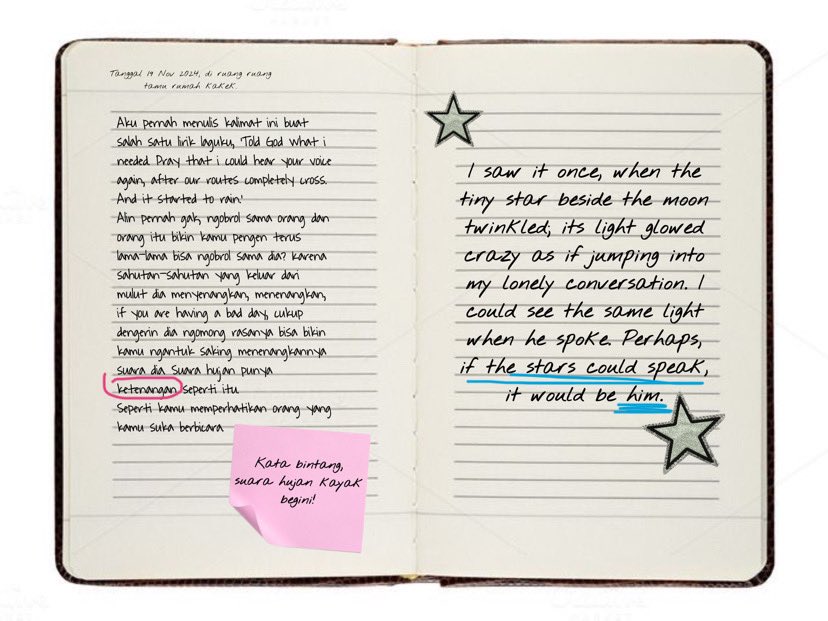 Tanggal 19 Nov 2024, di ruang ruang
tamu rumah Kakek.
Aku pernah menulis kalimat ini buat
salah satu lirik laguku, 'Told God What i
needed. Pray that i could hear your voice
again, after our routes completely cross.
And it started to rain.'
Alin pernah gak, ngobrol sama orang dan
orang itu bikin kamu pengen terus
lama-lama bisa ngobrol sama dia? karena
sahutan-sahutan yang keluar dari
mulut dia menyenangkan, menenangkan,
if you are having a bad day, cukup
dengerin dia ngomong rasanya bisa bikin
kamu ngantuk saking menenangkannya
suara dia. Suara hujan punya
ketenangan seperti itu.
Seperti kamu memperhatikan orang yang
kamu suka berbicara.
Kata bintang,
suara hujan kayak
begini!
I saw it once, when the
tiny star beside the moon
twinkled; its light glowed
crazy as if jumping into
my lonely conversation. I
could see the same light
when he spoke. Perhaps,
if the stars could speak,
it would be him.